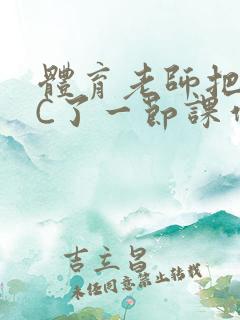 體育老師把
C了一節課
吉立昌
未經同意禁止轉載